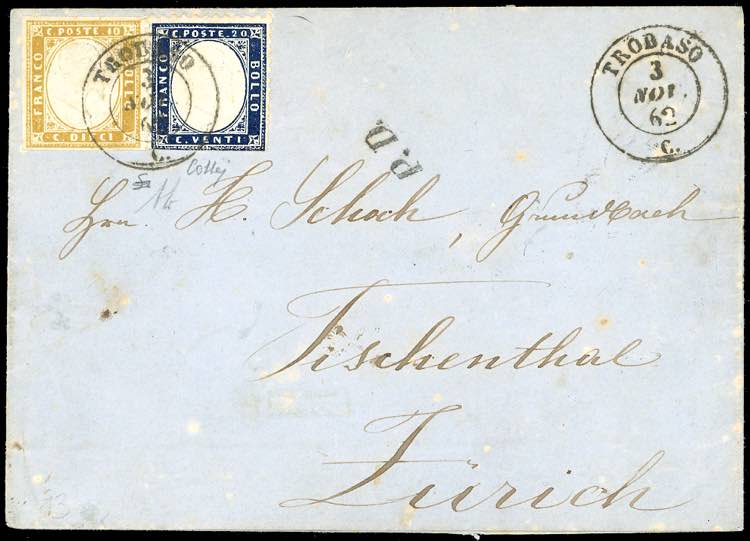 C. POSTE. 10
FRANCO
BOLLO
C. DIECI
C. POSTE. 20
FRANCO
BOLLO
C. VENTI
TROBASO
3
62
C.
TROBASO
3
NOV.
62
C.
P.D.
Hrn. H. Schoch, Grundbach
Fischenthal
Zürich